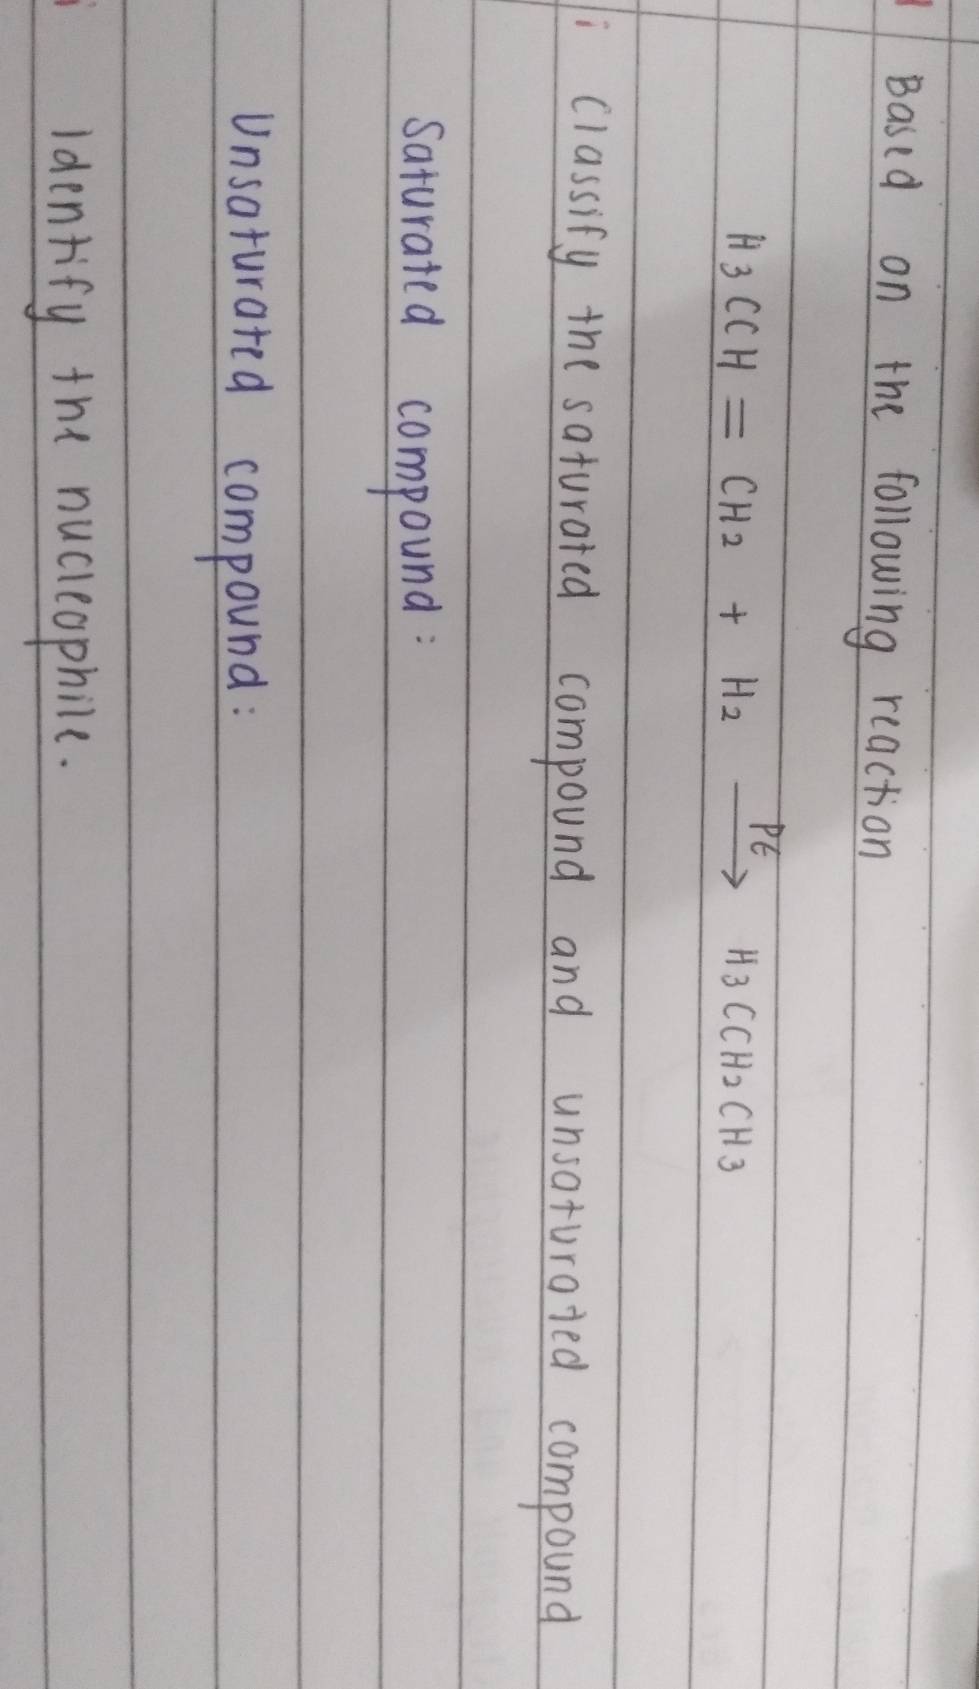 Based on the following reaction
H3CCH = CH2 + H2 Pt→ H3CCH2CH3
i Classify the saturated compound and unsaturated compound
Saturated compound:
Unsaturated compound:
Identify the nucleophile.